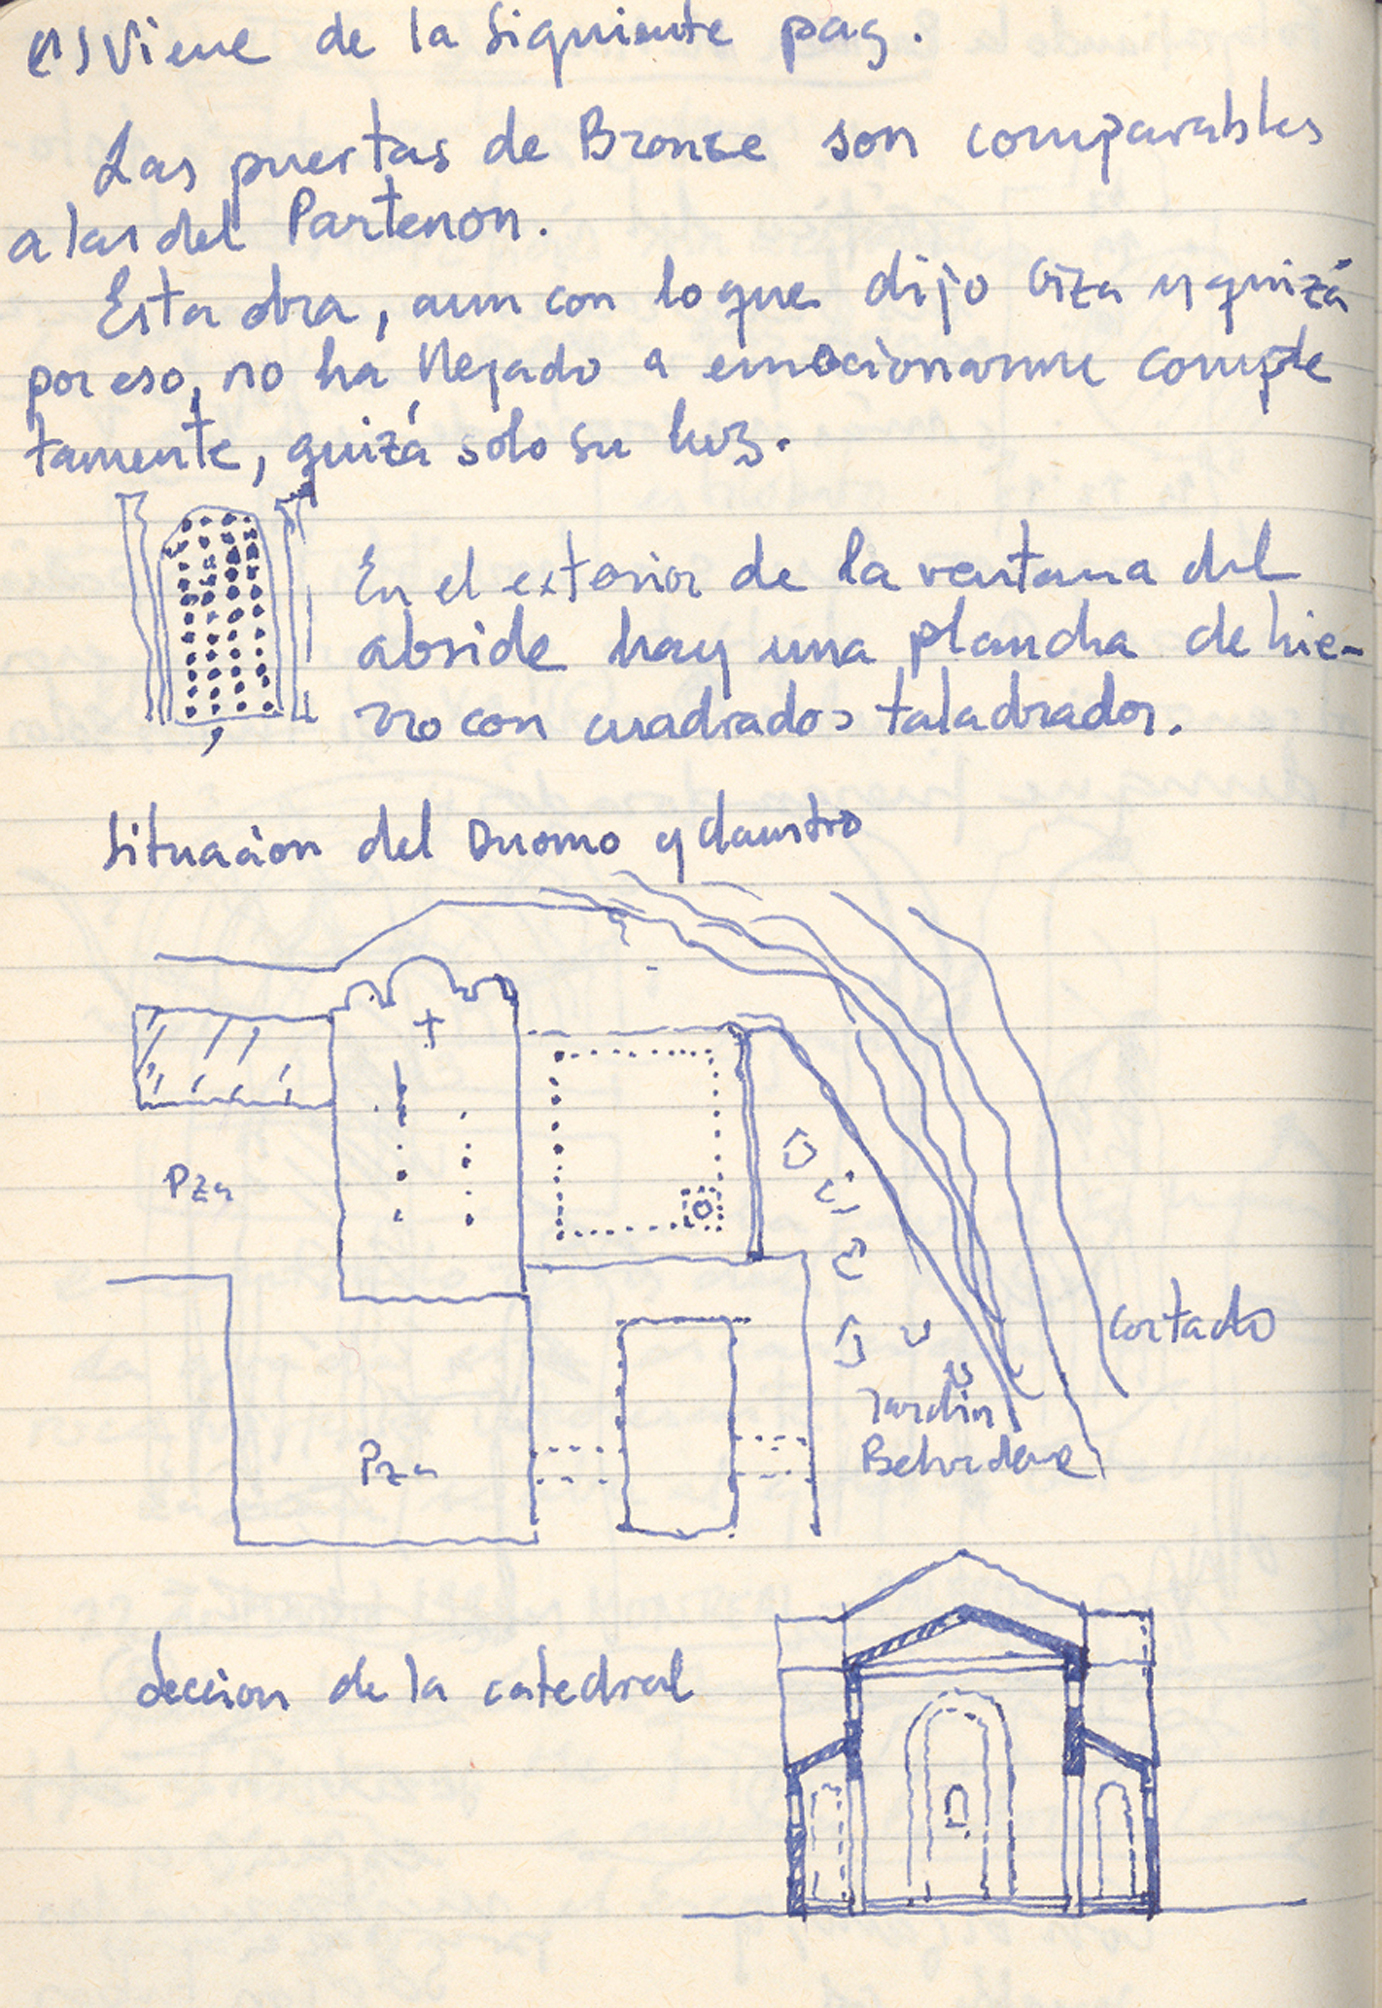 (1) Viene de la siguiente pag.
Las puertas de Bronce son comparables
a las del Partenon.
Esta obra, aun con lo que dijo Oiza y quizá
por eso, no ha llegado a emocionarme comple
tamente, quizá solo su luz.
En el exterior de la ventana del
abside hay una plancha de hie-
rro con cuadrados taladrados.
Situacion del Duomo y claustro
Pza
Cortado
Jardin
Belvidere
Pza
Seccion de la catedral